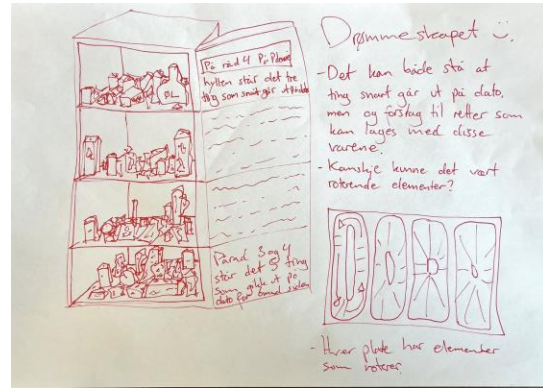 På råd 4 På Plane
hyllen står det tre
ting som snart går ut på dato
ØL
På rad 3 og 4
står det 5 ting
som gikk ut på
dato for
siden
Drømmeskapet :).
- Det kan både stå at
ting snart går ut på dato,
men og forslag til retter som
kan lages med disse
varene.
- Kanskje kunne det vært
roterende elementer?
- Hver plate har elementer
som roterer.